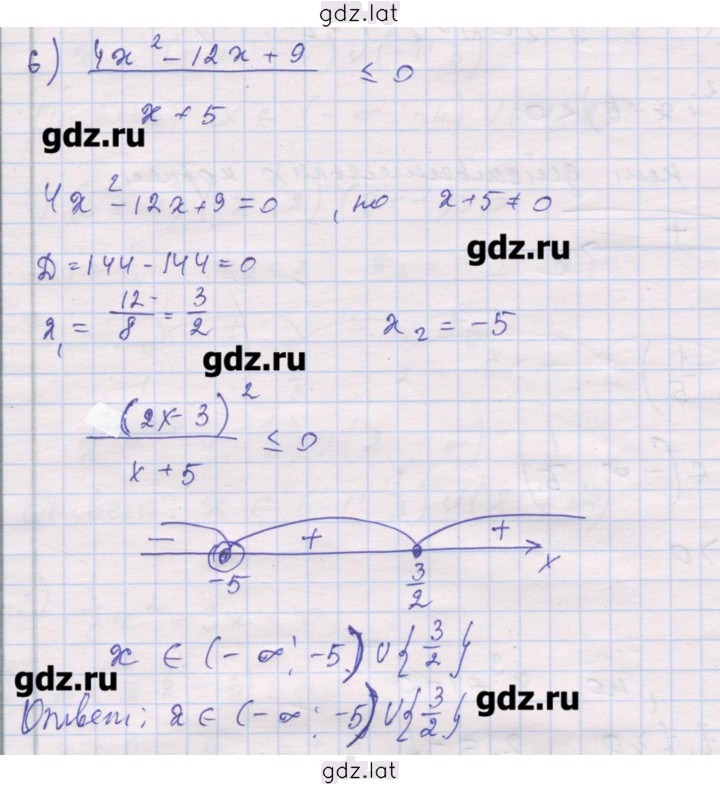 gdz.lat
6) (4x² - 12x + 9)/(x + 5) ≤ 0
gdz.ru
4x² - 12x + 9 = 0 , но x + 5 ≠ 0
gdz.ru
Д = 144 - 144 = 0
x₁ = 12/8 = 3/2 x₂ = -5
gdz.ru
(2x - 3)²/(x + 5) ≤ 0
- + +
-5 3/2 x
x ∈ (-∞; -5) ∪ {3/2}
gdz.ru
gdz.ru
Ответ: x ∈ (-∞; -5) ∪ {3/2}
gdz.lat